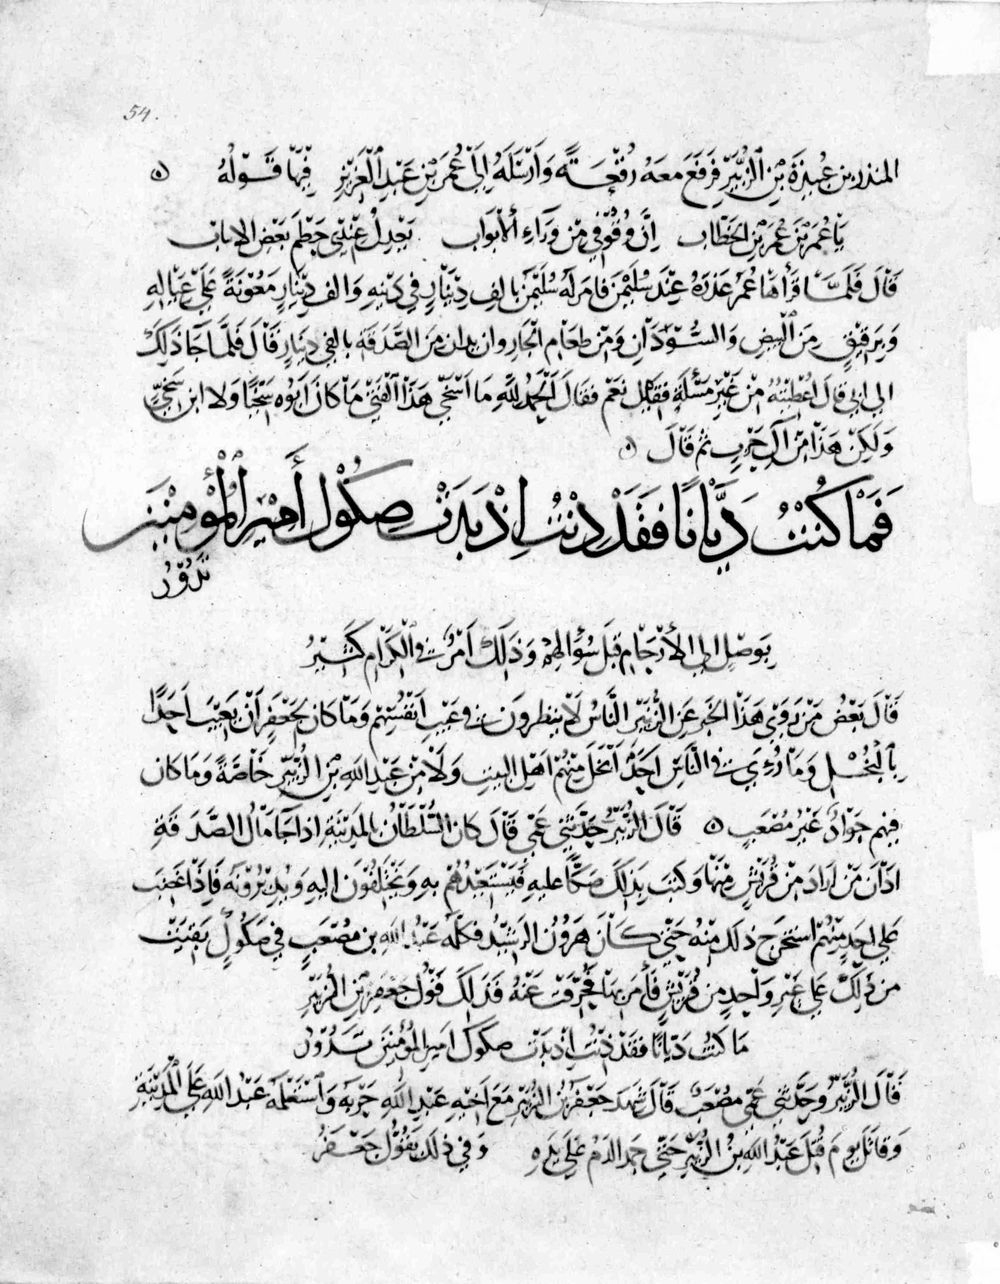 54.
المنذر بن عبيدة بن الزبير فرفع معه رقعة وأرسله إلى عمر بن عبد العزيز فيها قوله
يا عمر بن عمر بن الخطاب إن وقوفي من وراء الأبواب يعدل عندي حطم بعض الأنياب
قال فلما قرأها عمر عذره عند سليمن فأمر له سليمن بألف دينار في دينه وألف دينار معونة على عياله
وبرقيق من البيض والسودان ومن طعام الجار وأن يدان من الصدقة بألفي دينار قال فلما جا ذلك
إلى أبي قال أعطيته من غير مسألة فقيل نعم فقال الحمد لله ما أسخى هذا الفتى ما كان أبوه سخيا ولا ابن سخي
ولكن هذا من آل حرب ثم قال
فما كنت ديانا فقد دنت إذ بدت صكوك أمير المؤمنين
تدور
بوصل إلى الأرحام قبل سؤالهم وذلك أمر في الكرام كثير
قال بعض من يروي هذا الخبر عن الزبير الناس لا ينظرون في عيب أنفسهم وما كان لجعفر أن يعيب أحدا
بالبخل وما رؤي في الناس أحد أبخل منهم أهل البيت ولا من عبد الله بن الزبير خاصة وما كان
فيهم جواد غير مصعب قال الزبير حدثني عمي قال كان السلطان بالمدينة إذا جا مال الصدقة
ادان من أراد من قريش منها وكتب بذلك صكا عليه فيستعبدهم به ويختلفون إليه ويدبرونه فإذا غضب
على أحد منهم استخرج ذلك منه حتى كان هرون الرشيد فكلمه عبد الله بن مصعب في صكوك بقيت
من ذلك على غير واحد من قريش فأمر بها فخرقت عنه فذلك قول جعفر بن الزبير
ما كنت ديانا فقد دنت إذ بدت صكوك أمير المؤمنين تدور
قال الزبير وحدثني عمي مصعب قال شهد جعفر بن الزبير مع أخيه عبد الله حربه واستعمله عبد الله على المدينة
وقاتل يوم قتل عبد الله بن الزبير حتى جمد الدم على يده وفي ذلك يقول جعفر